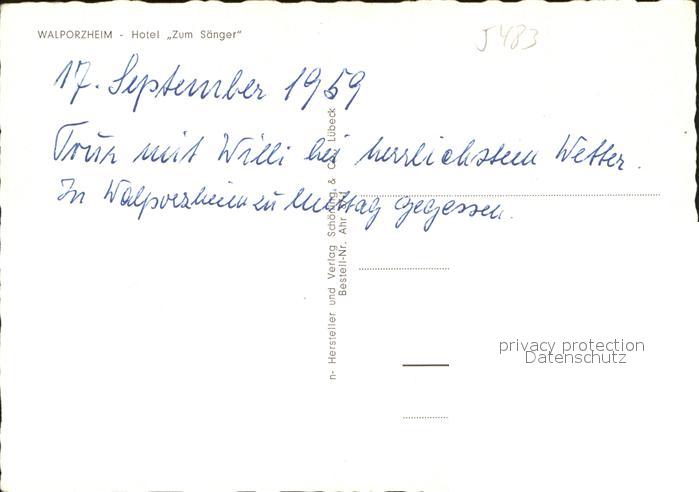 WALPORZHEIM - Hotel „Zum Sänger“
5483
17. September 1959
Tour mit Willi bei herrlichstem Wetter.
In Walporzheim zu Mittag gegessen.
n- Hersteller und Verlag Schöning & Co., Lübeck
Bestell-Nr. Ahr
privacy protection
Datenschutz